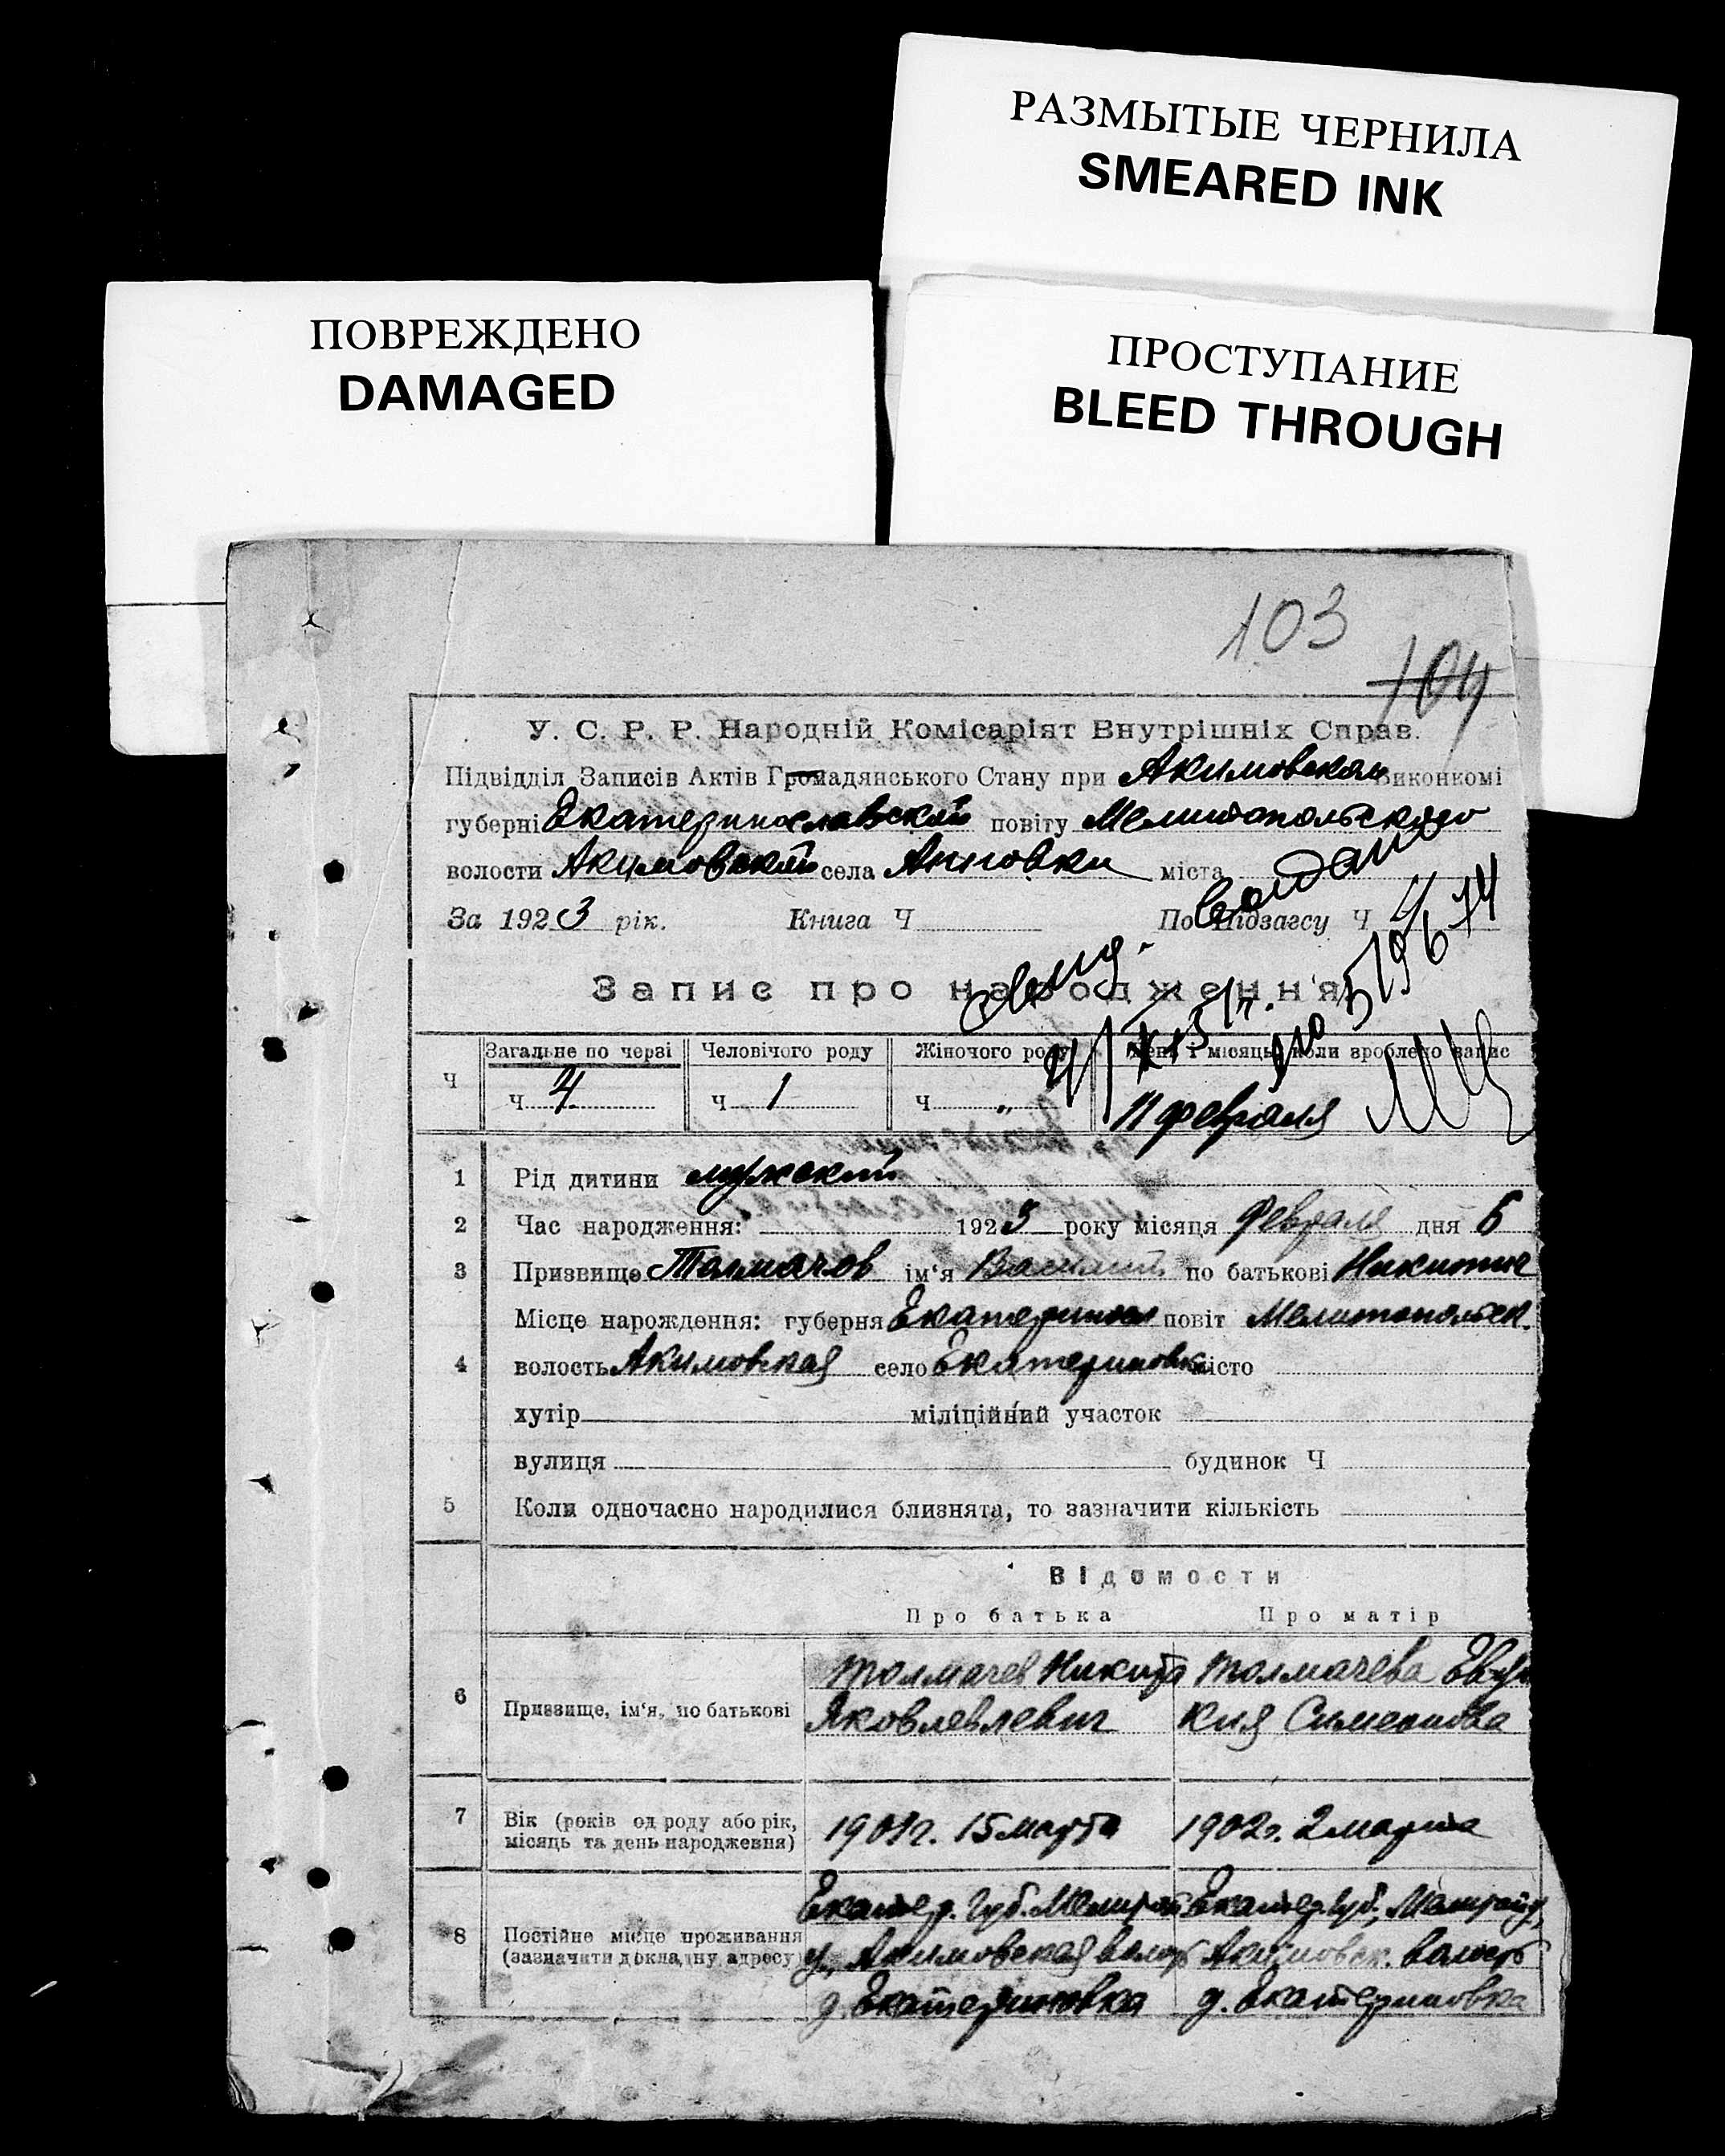 РАЗМЫТЫЕ ЧЕРНИЛА
SMEARED INK
ПОВРЕЖДЕНО
DAMAGED
ПРОСТУПАНИЕ
BLEED THROUGH
103
104
У. С. Р. Р. Народній Комісаріят Внутрішніх Справ.
Підвідділ Записів Актів Громадянського Стану при Акимовском Виконкомі
губерні Екатеринославской повіту Мелитопольского
волости Акимовской села Анновки міста
За 1923 рік. Книга Ч По Підзагсу Ч
Запис про народження
Загальне по черзі Человічого роду Жіночого роду День і місяць, коли зроблено запис
Ч Ч 4 Ч 1 Ч „ 11 февраля
1 Рід дитини мужской
2 Час народження: 1923 року місяця Февраля дня 6
3 Призвище Толмачов ім'я Василий по батькові Никитич
Місце нарождення: губерня Екатеринос повіт Мелитопольск.
4 волость Акимовская село Екатериновка місто
хутір міліційний участок
вулиця будинок Ч
5 Коли одночасно народилися близнята, то зазначити кількість
Відомости
Про батька Про матір
6 Призвище, ім'я, по батькові
Толмачев Никита Яковлевлевич
Толмачева Евдо
кия Симеонова
7 Вік (років од роду або рік,
місяць та день народження)
1901г. 15 марта 1902г. 2 марта
8 Постійне місце проживання
(зазначити докладну адресу)
Екатер. губ. Мелитоп
у, Акимовская волость
д. Екатериновка
Екатер. губ, Мелитоп у,
Акимовск. волость
д. Екатериновка